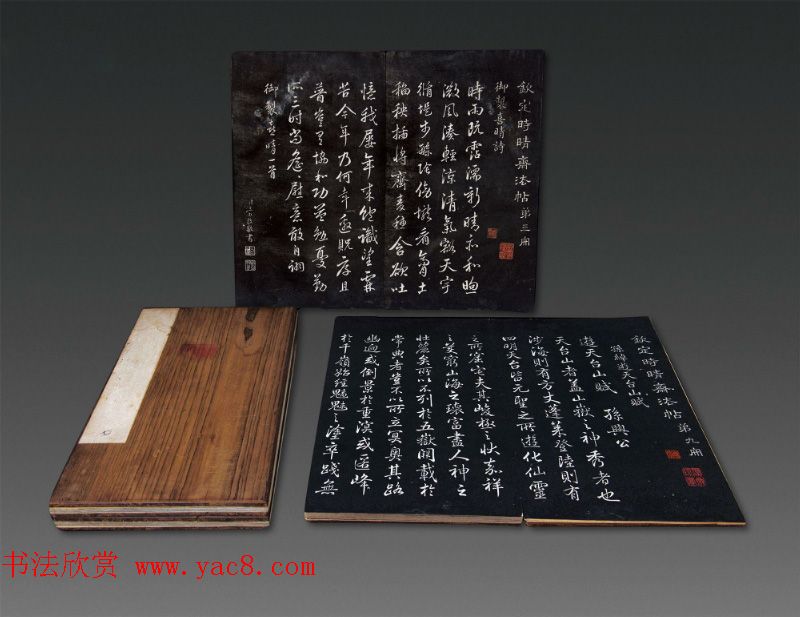 欽定時晴齋法帖第三冊
御製喜晴詩
時雨既霑濡新晴亦和煦
微風湊輕涼清氣豁天宇
循堤步綠陰傍壠看膏土
稻秧插將齊麥穗含欲吐
憶我屢年來他識望霖
苦今年乃何幸遂貺存且
普並看協和功益勉憂勤
御製喜晴一首
欽定時晴齋法帖第九冊
孫綽遊天台山賦
遊天台山賦 孫興公
天台山者蓋山嶽之神秀者也
涉海則有方丈蓬萊登陸則有
四明天台皆元聖之所遊化仙靈
之所窟宅夫其峻極之狀嘉祥
之美窮山海之瓌富盡人神之
壯麗矣所以不列於五嶽闕載於
常典者豈不以所立冥奧其路
幽迥或倒景於重溟或匿峰
於千嶺始經魑魅之塗卒踐無
书法欣赏 www.yac8.com